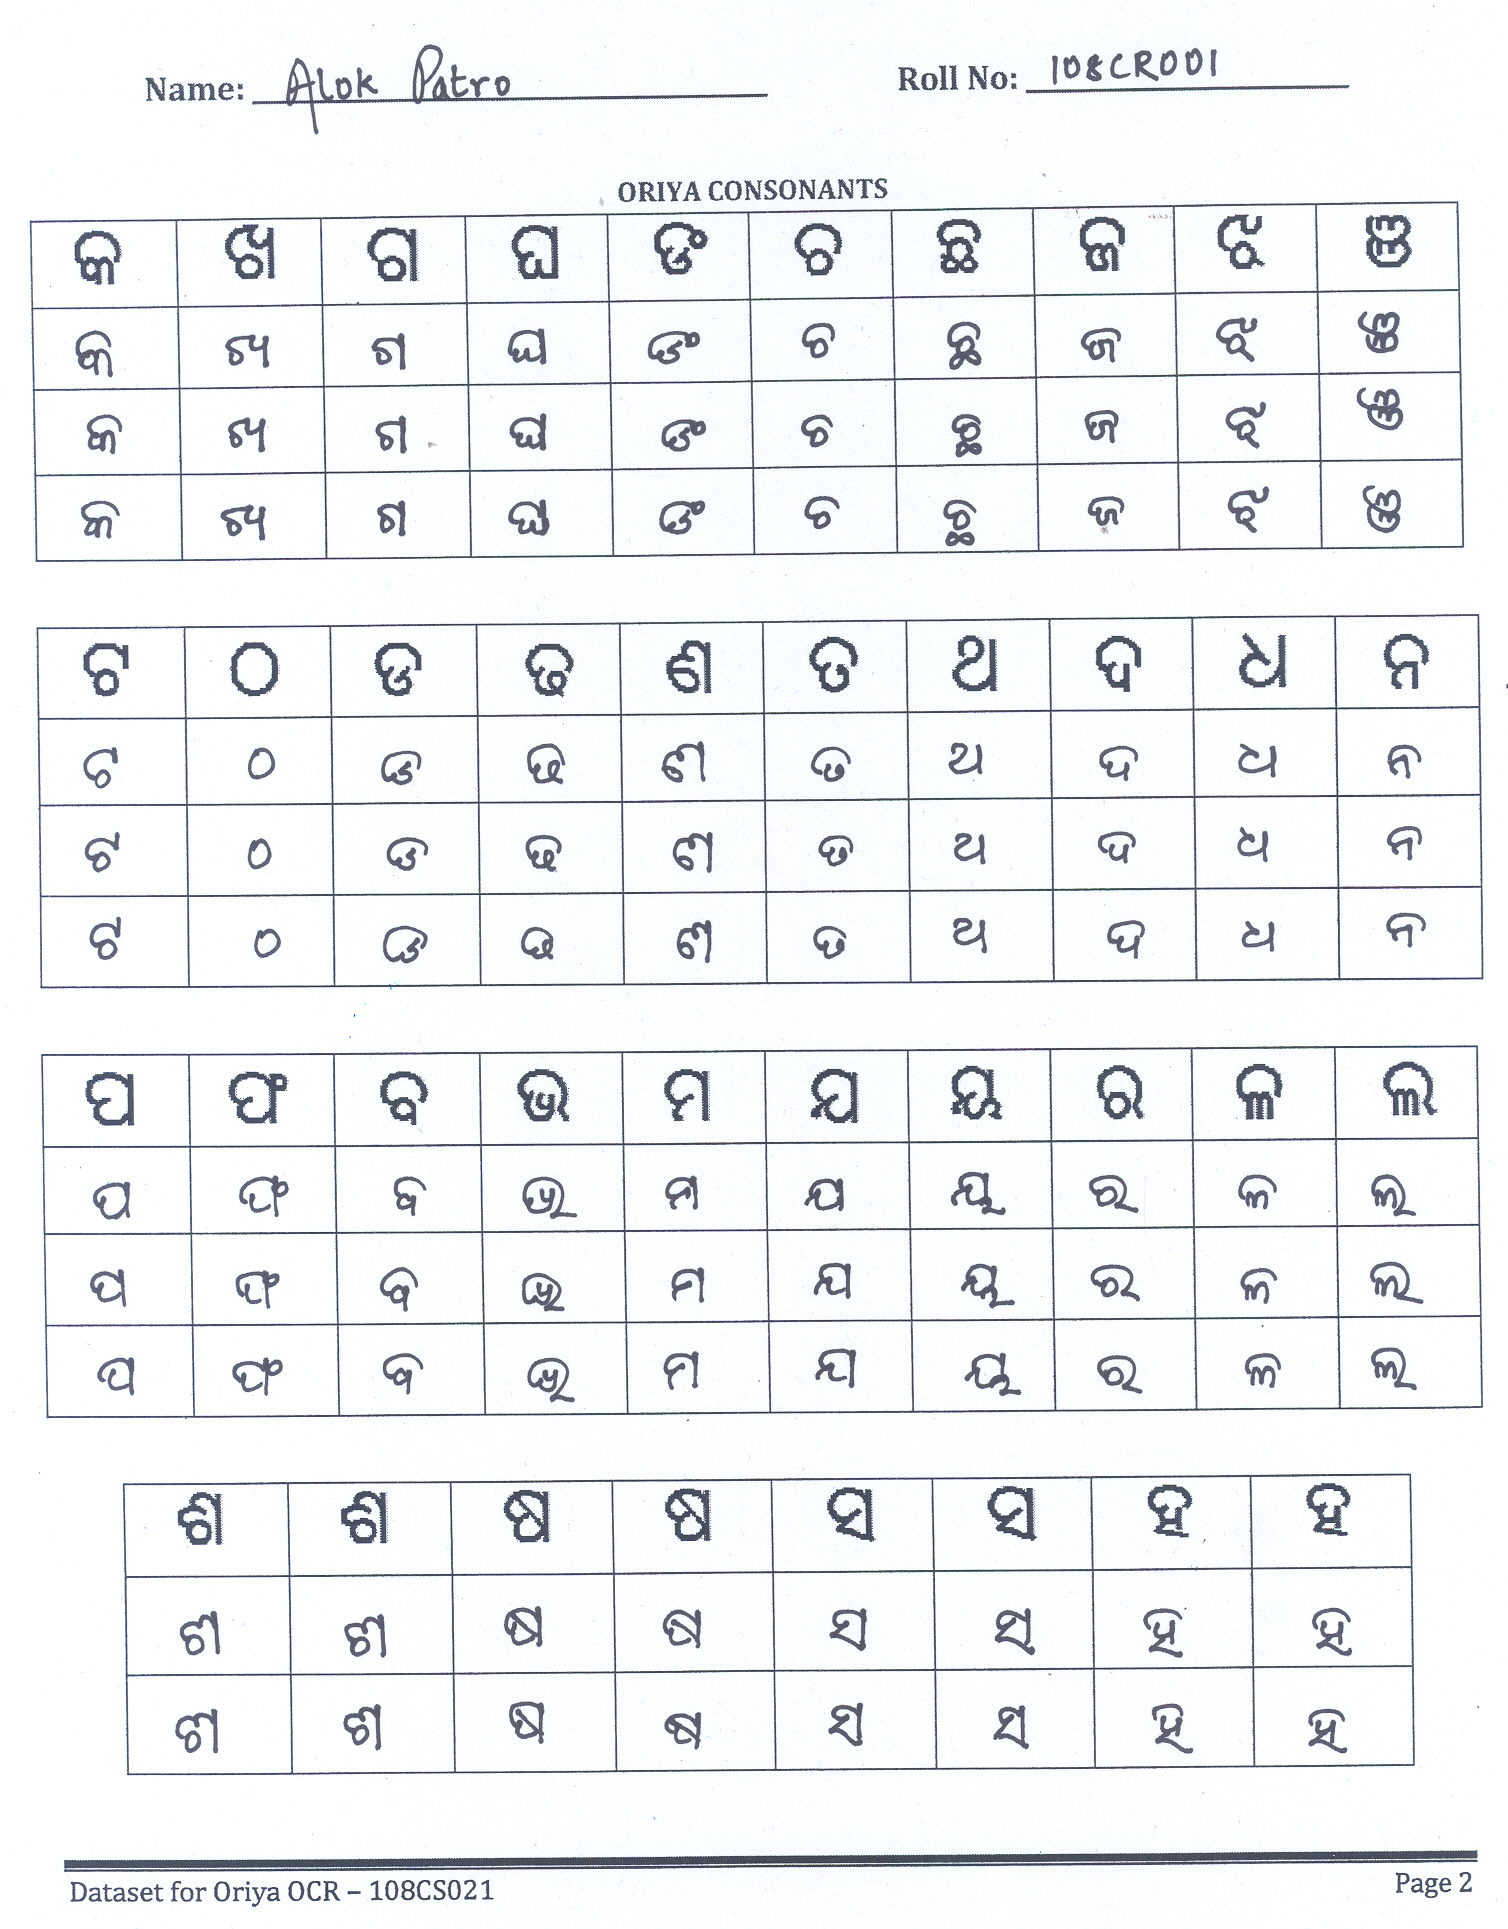 Name: Alok Patro Roll No: 108CR001
ORIYA CONSONANTS
କ ଖ ଗ ଘ ଙ ଚ ଛ ଜ ଝ ଞ
କ ଖ ଗ ଘ ଙ ଚ ଛ ଜ ଝ ଞ
କ ଖ ଗ ଘ ଙ ଚ ଛ ଜ ଝ ଞ
କ ଖ ଗ ଘ ଙ ଚ ଛ ଜ ଝ ଞ
ଟ ଠ ଡ ଢ ଣ ତ ଥ ଦ ଧ ନ
ଟ ଠ ଡ ଢ ଣ ତ ଥ ଦ ଧ ନ
ଟ ଠ ଡ ଢ ଣ ତ ଥ ଦ ଧ ନ
ଟ ଠ ଡ ଢ ଣ ତ ଥ ଦ ଧ ନ
ପ ଫ ବ ଭ ମ ଯ ୟ ର ଳ ଲ
ପ ଫ ବ ଭ ମ ଯ ୟ ର ଳ ଲ
ପ ଫ ବ ଭ ମ ଯ ୟ ର ଳ ଲ
ପ ଫ ବ ଭ ମ ଯ ୟ ର ଳ ଲ
ଶ ଶ ଷ ଷ ସ ସ ହ ହ
ଶ ଶ ଷ ଷ ସ ସ ହ ହ
ଶ ଶ ଷ ଷ ସ ସ ହ ହ
Dataset for Oriya OCR – 108CS021 Page 2